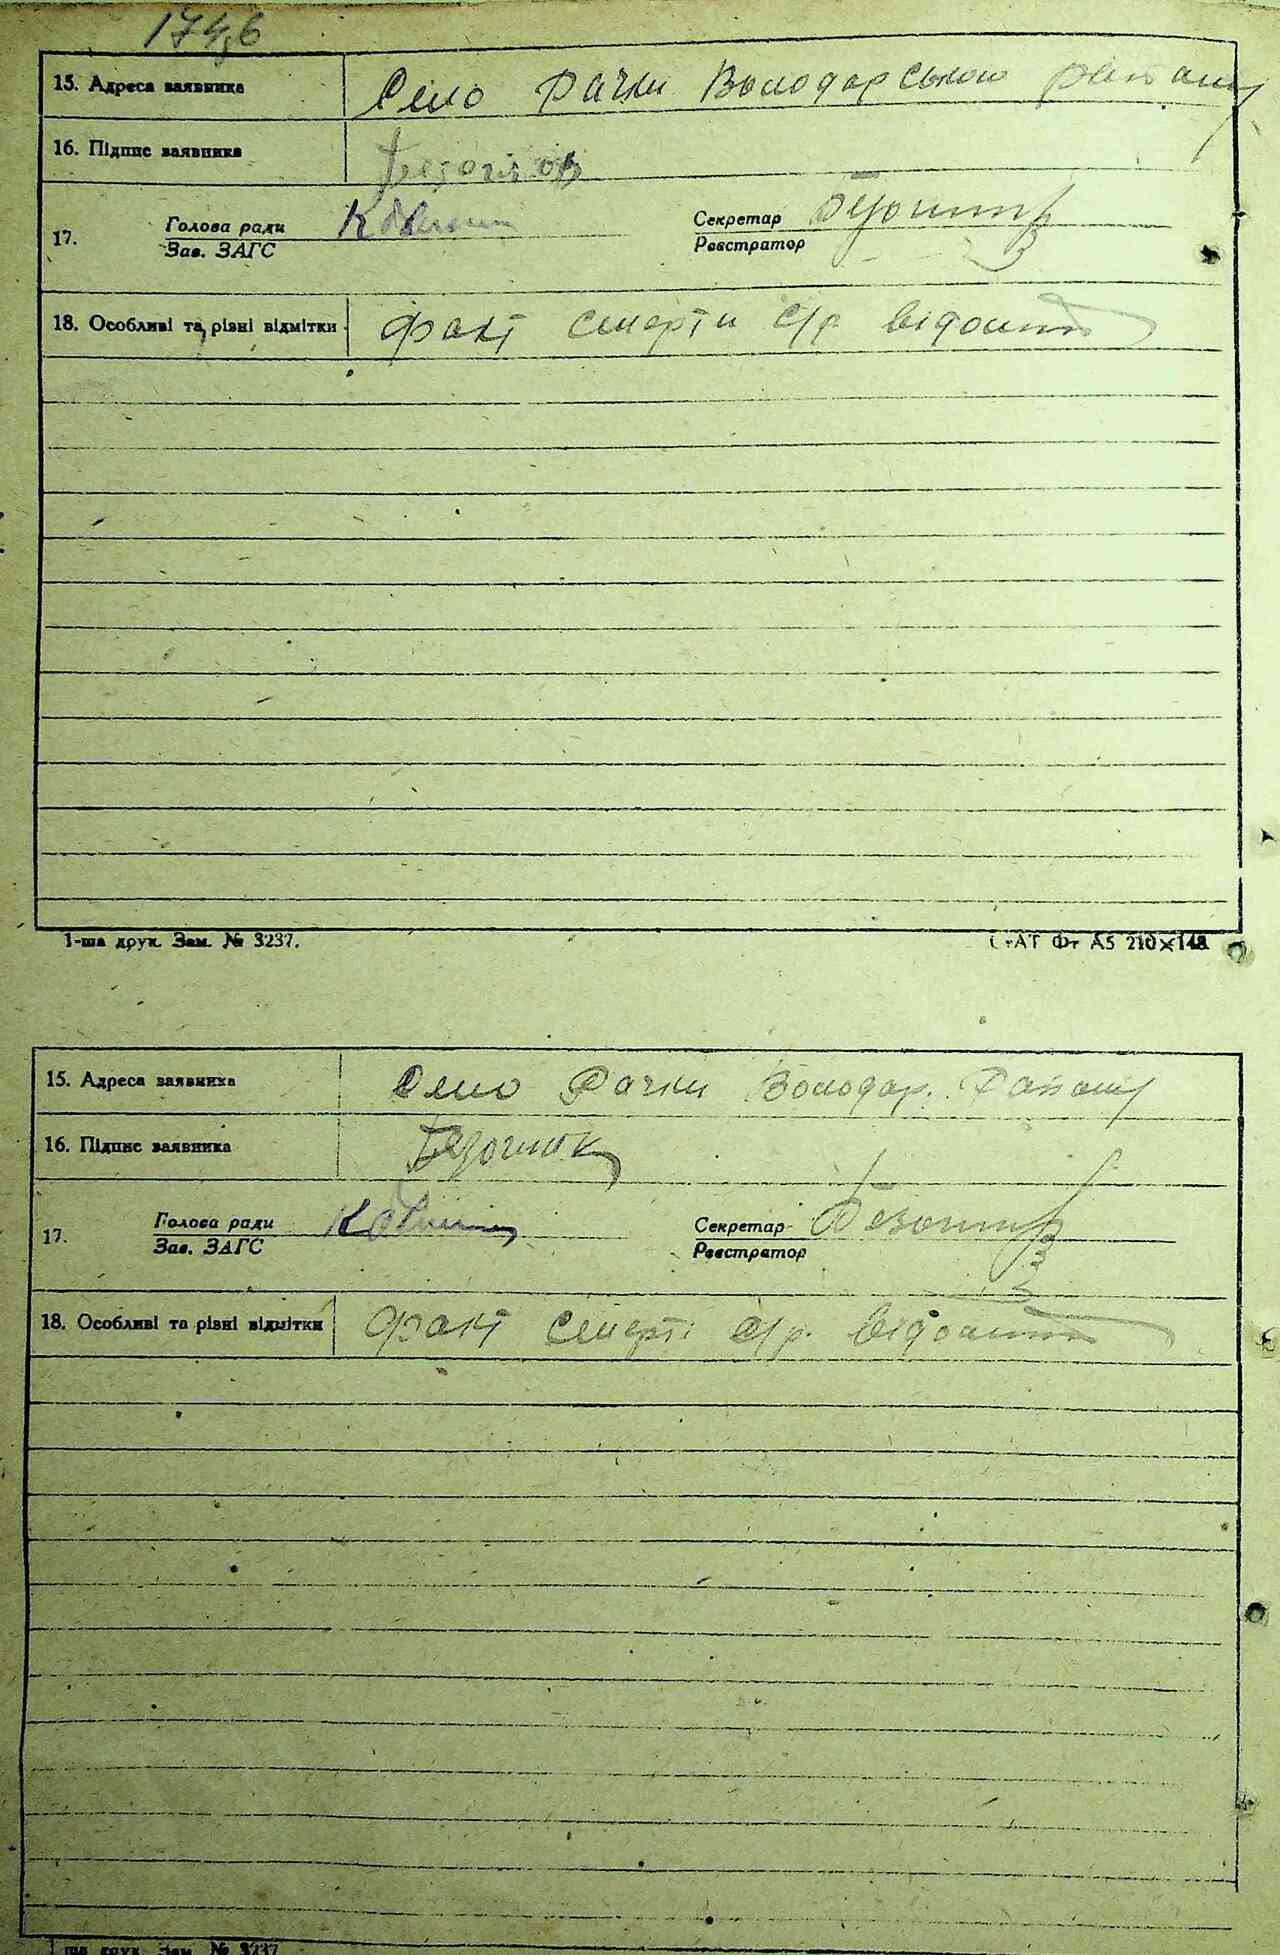 15. Адреса заявника Село Рачки Володарського району
16. Підпис заявника
17. Голова ради Секретар
Зав. ЗАГС Реєстратор
18. Особливі та різні відмітки факт смерти с/р відомий
1-ша друк. Зам. № 3237. СтАТ Фт А5 210×148
15. Адреса заявника Село Рачки Володар. Району
16. Підпис заявника
17. Голова ради Секретар
Зав. ЗАГС Реєстратор
18. Особливі та різні відмітки факт смерті с/р. відомий
ша друк. Зам. № 3237